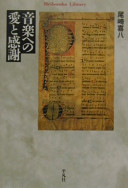 Heibonsha Library
尾崎喜八
音楽への
愛と感謝
平凡社